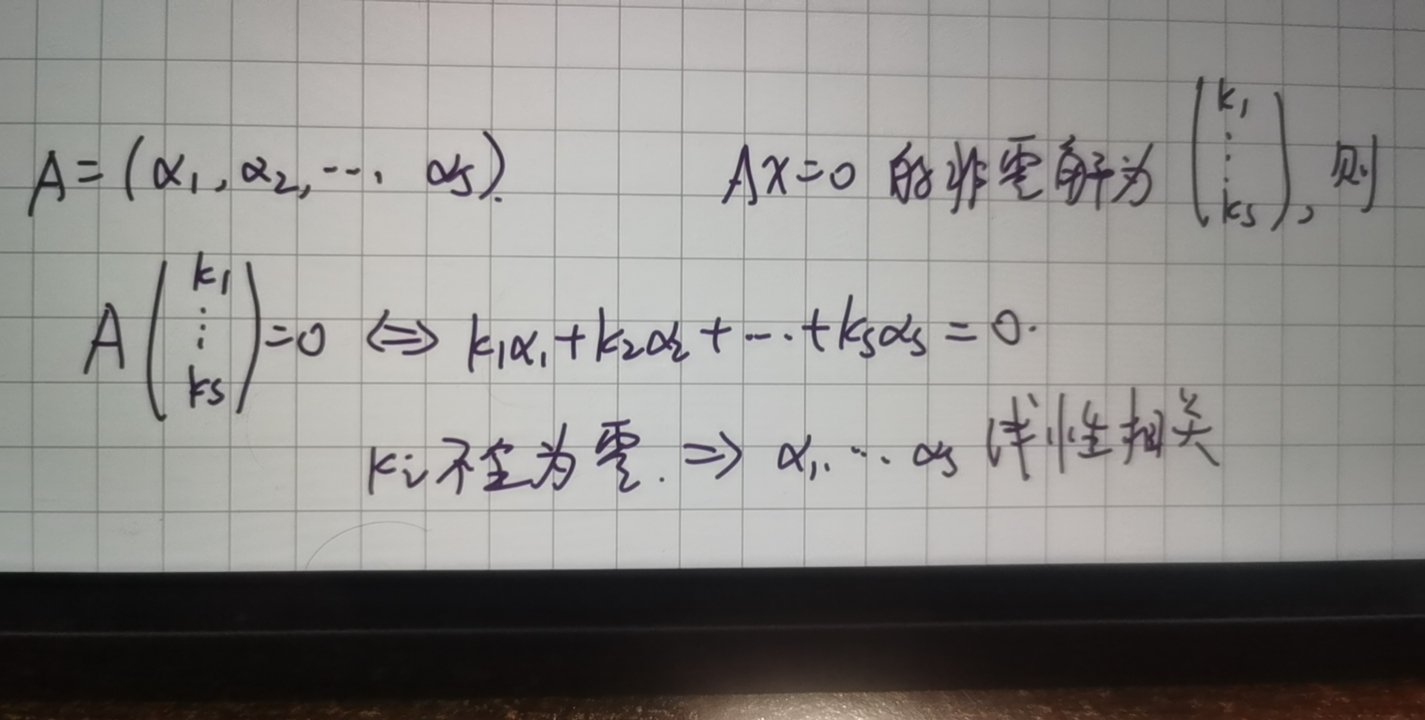 A=(α₁,α₂,…, αs). Ax=0 的非零解为 (k₁ ⋮ ks), 则
A(k₁ ⋮ ks)=0 ⇔ k₁α₁+k₂α₂+…+ksαs=0.
ki不全为零. ⇒ α₁,…αs 线性相关